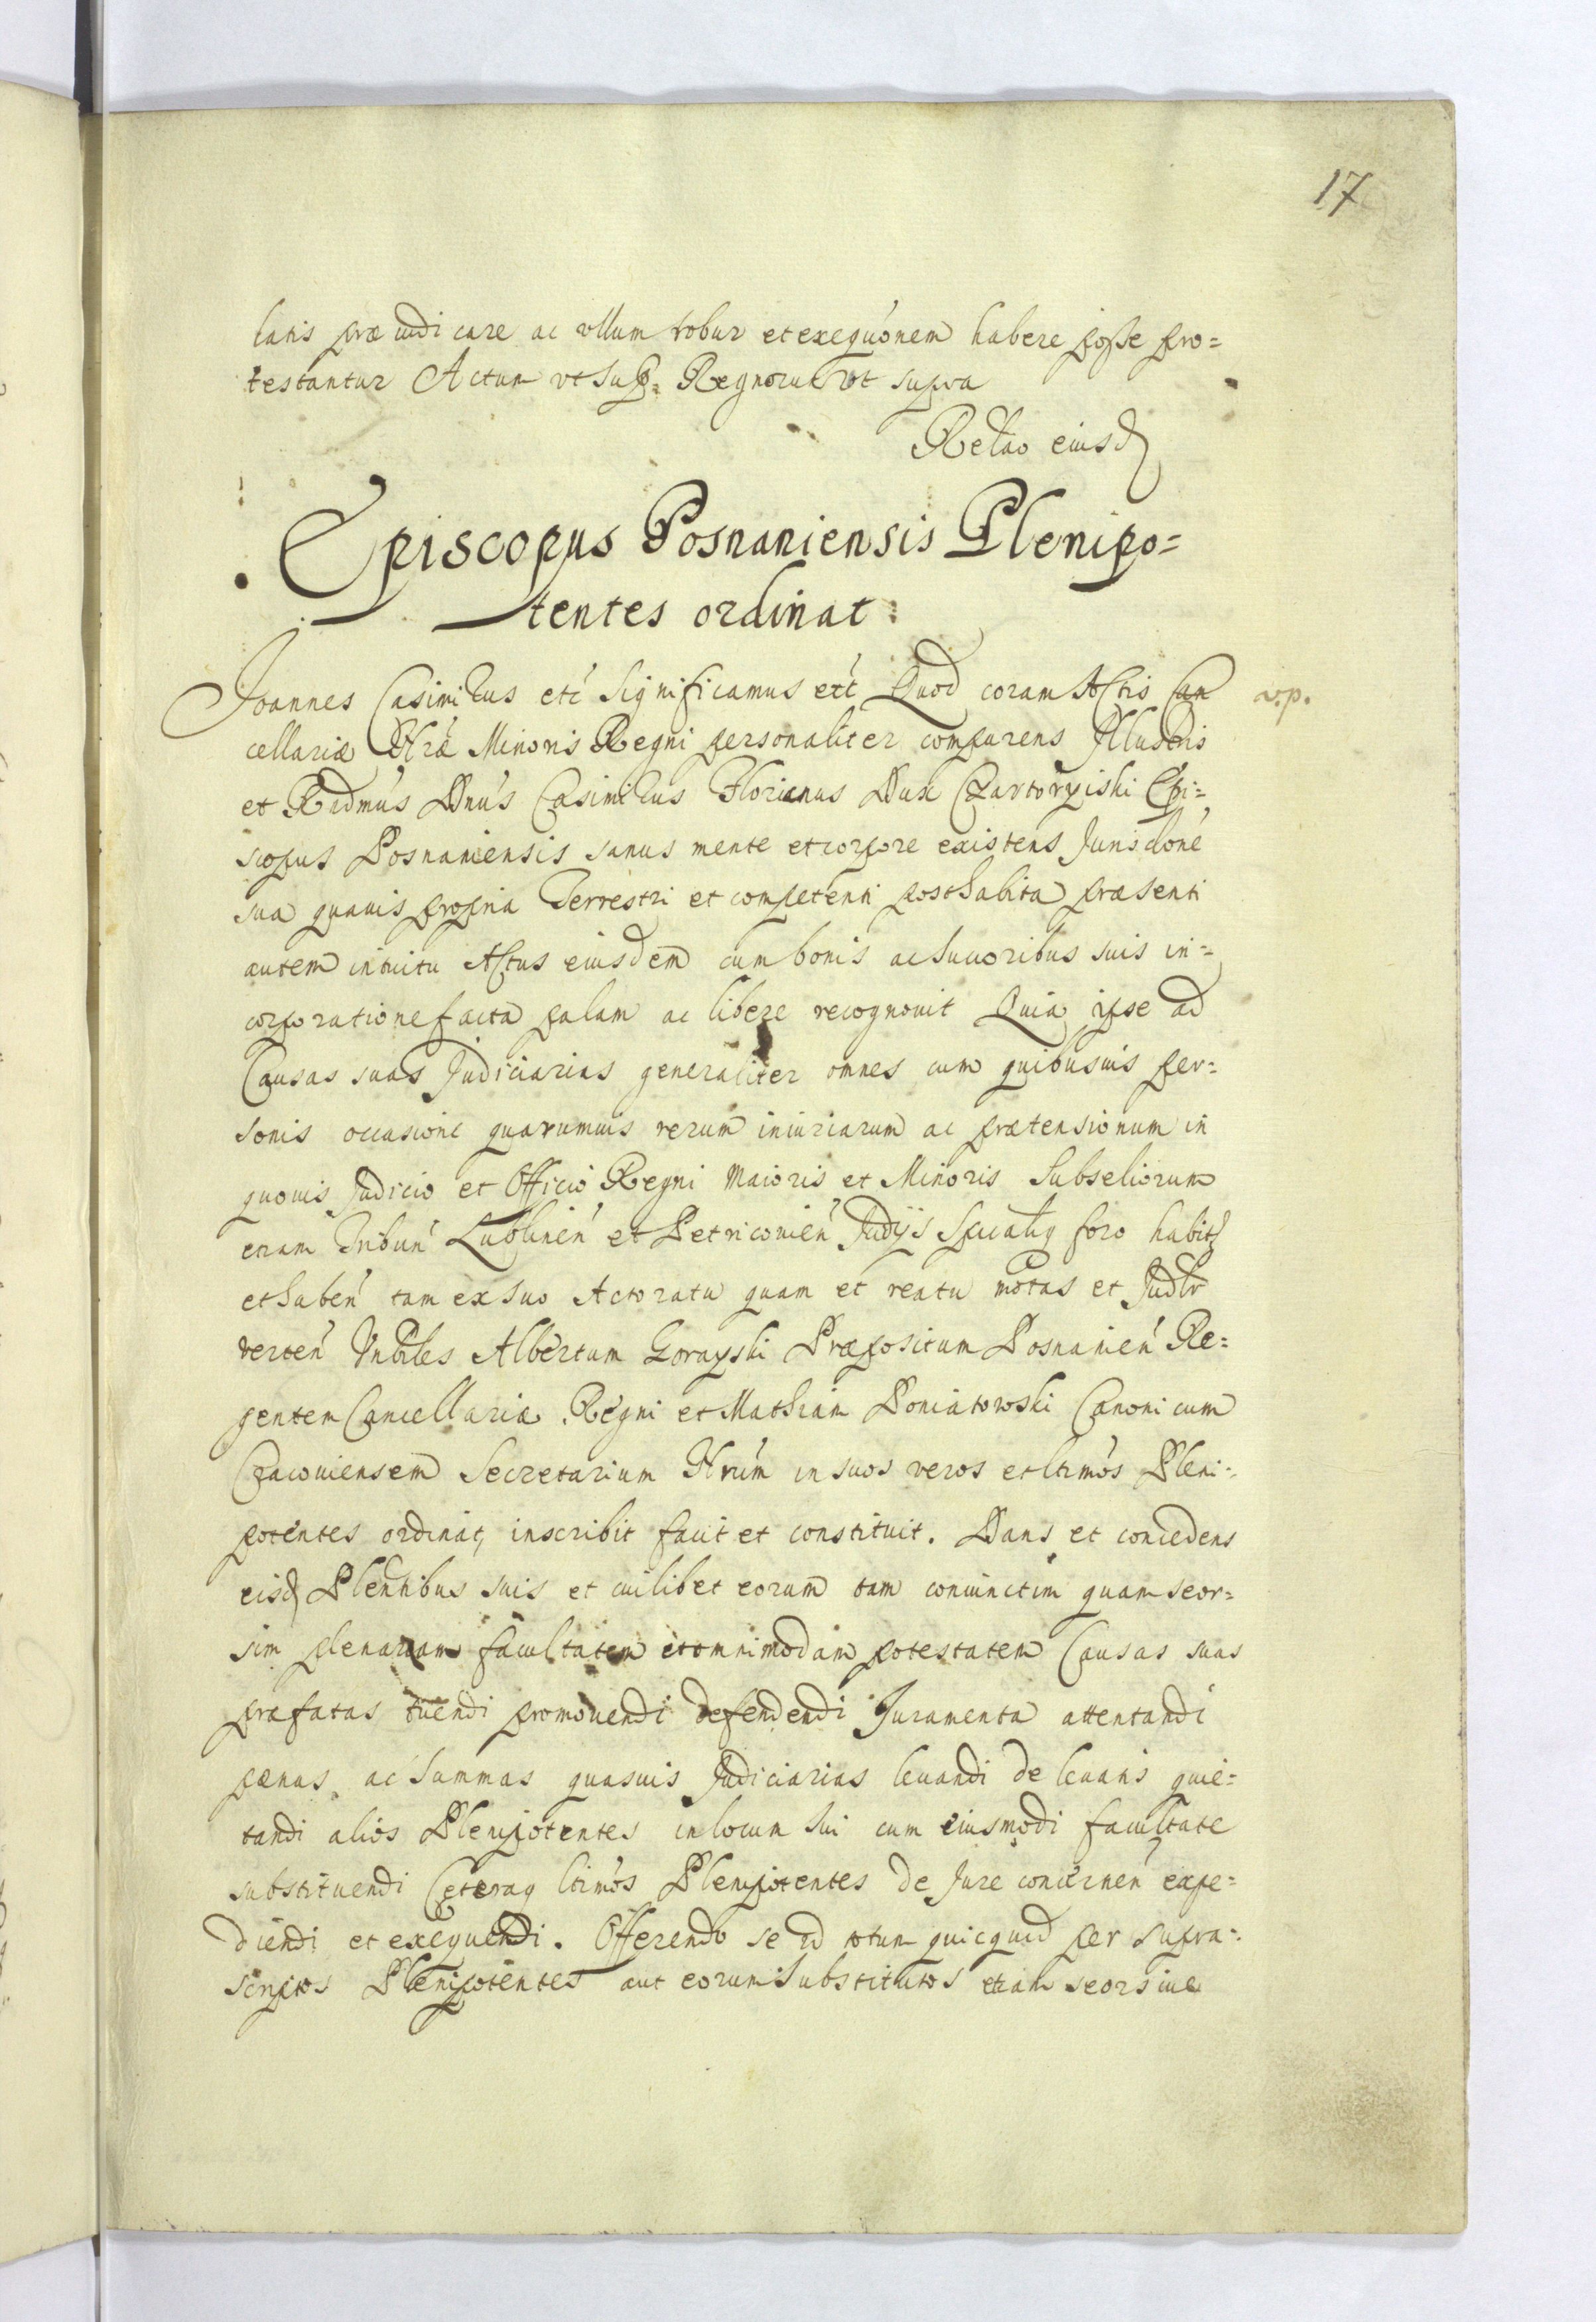 17
latis præiudicare ac vllum robur et exequónem habere posse pro=
testantur Actum vt sup: Regnorum vt supra
Relao eiusd
Episcopus Posnaniensis Plenipo=
tentes ordinat
Joannes Casimirus etć significamus etć Quod coram Actis Can
cellariæ Nræ Minoris Regni personaliter comparens Illustris
et Rndmús Dnús Casimirus Florianus Dux Czartoryiski Epi=
scopus Posnaniensis sanus mente et corpore existens Jurisdoné
sua quauis propria Terrestri et competenti posthabita præsenti
autem intuitu Actus eiusdem cum bonis ac Succoribus suis in=
corporatione facta palam ac libere recognouit Quia ipse ad
Causas suas Judiciarias generaliter omnes cum quibusuis per=
sonis occasione quarumuis rerum iniuriarum ac prætensionum in
quouis Judicio et Officio Regni Maioris et Minoris Subseliorum
etiam Tribun Lublinen et Petricouien foro habit
et haben tam ex suo Actoratu quam et reatu motas et Judlr
verten Vnbiles Albertum Gorayski Præpositum Posnanien Re=
gentem Cancellariæ Regni et Mathiam Poniatowski Canonicum
Cracouiensem Secretarium Nrúm in suos veros et ltimós Pleni=
potentes ordinat, inscribit facit et constituit. Dans et concedens
eisd Plentibus suis et cuilibet eorum tam coniunctim quam seor=
sim plenariam facultatem et omnimodam potestatem Causas suas
præfatas tuendi promouendi defendendi Juramenta attentandi
pænas ac Summas quasuis Judiciarias leuandi de leuatis quie=
tandi alios Plenipotentes in locum sui cum eiusmodi facultate
substituendi Ceteraq ltimós Plenipotentes de Jure concernen expe=
diendi et exequendi. Offerendo se ad totum quicquid per supra=
scriptos Plenipotentes aut eorum Substitutos etiam seorsiue